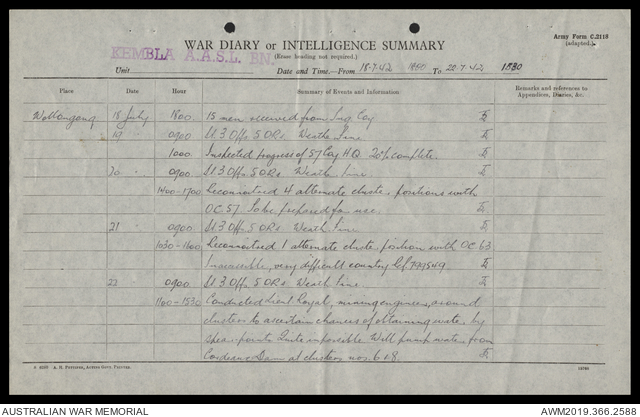 Army Form C.2118
(adapted.)
WAR DIARY or INTELLIGENCE SUMMARY
(Erase heading not required.)
KEMBLA A.A.S.L. BN.
Unit
Date and Time.—From 18-7-42 1800 To 22-7-42 1530
Place Date Hour Summary of Events and Information Remarks and references to
Appendices, Diaries, &c.
Wollongong 18 July 1800 15 men received from Sig Coy
19 " 0900 St 3 Offs 5 ORs Weath. Fine
1000 Inspected progress of 57 Coy H.Q. 20% complete.
20 " 0900 St 3 Offs 5 ORs Weath. Fine
1400-1700 Reconnoitred 4 alternate cluster positions with
OC 57. To be prepared for use.
21 " 0900 St 3 Offs 5 ORs Weath Fine.
1030-1600 Reconnoitred 1 alternate cluster position with OC 63
Inaccessible, very difficult country Ref. 799549
22 0900 St 3 Offs 5 ORs Weath Fine.
1100-1530 Conducted Lieut Royal, mining engineer, around
clusters to ascertain chances of obtaining water by
spear points. Quite impossible. Will pump water from
Cordeaux Dam at clusters nos. 6 & 8.
A. H. PETTIFER, ACTING GOVT. PRINTER.
AUSTRALIAN WAR MEMORIAL
AWM2019.366.2588